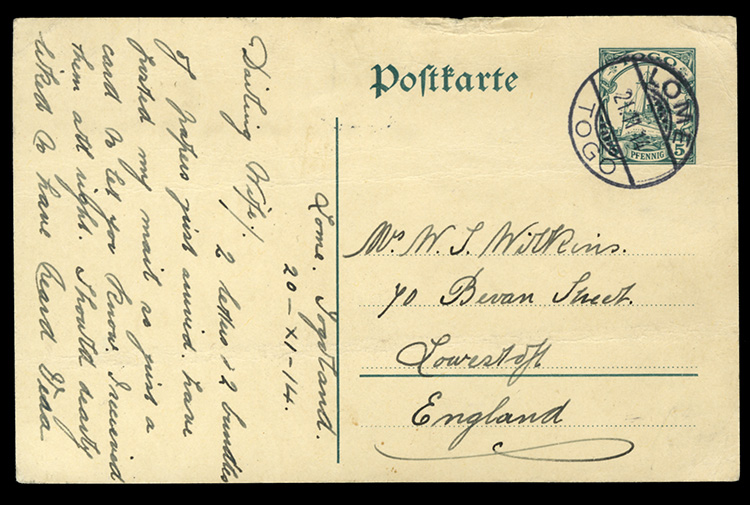 Postkarte
TOGO
5 PFENNIG 5
LOME
TOGO
Mrs W. S. Wilkins.
70 Bevan Street.
Lowestoft
England
Lome. Togoland.
20-XI-14.
Darling Wife/. 2 letters & 2 bundles
of papers just arrived. have
posted my mail so just a
card to let you know I received
them all right. I should dearly
liked to have heard